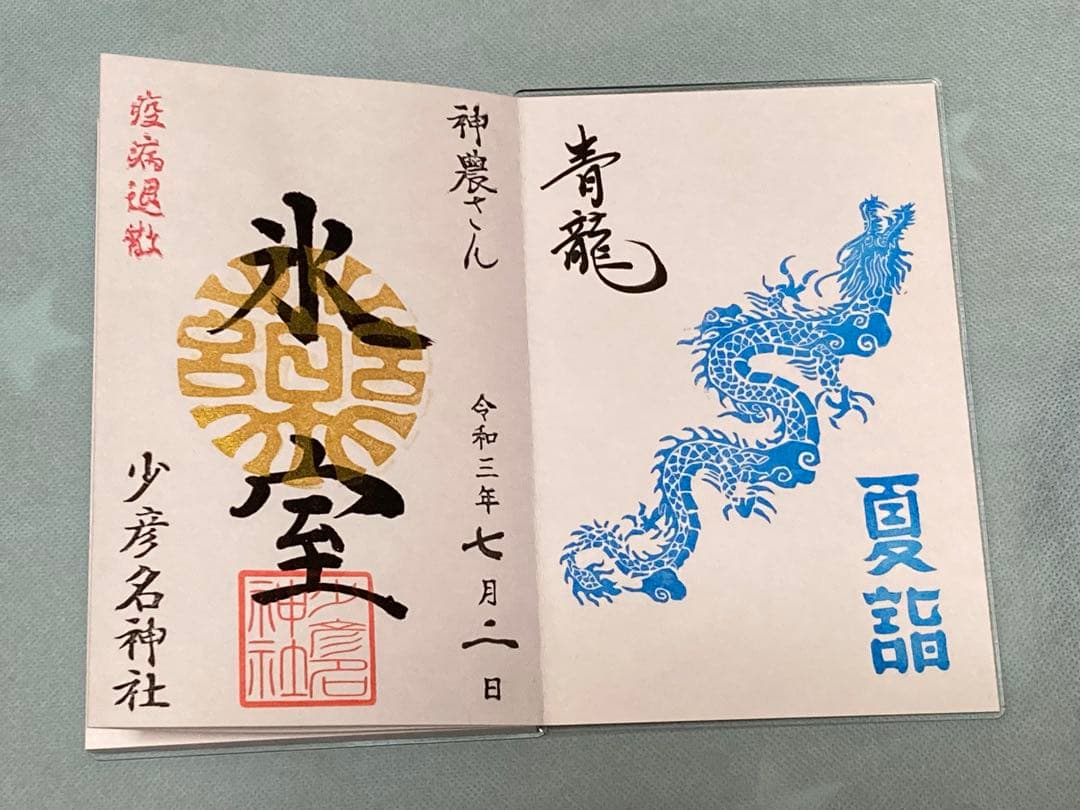 青龍
夏詣
神農さん
令和三年七月二日
氷室
少彦名
神社
疫病退散
少彦名神社